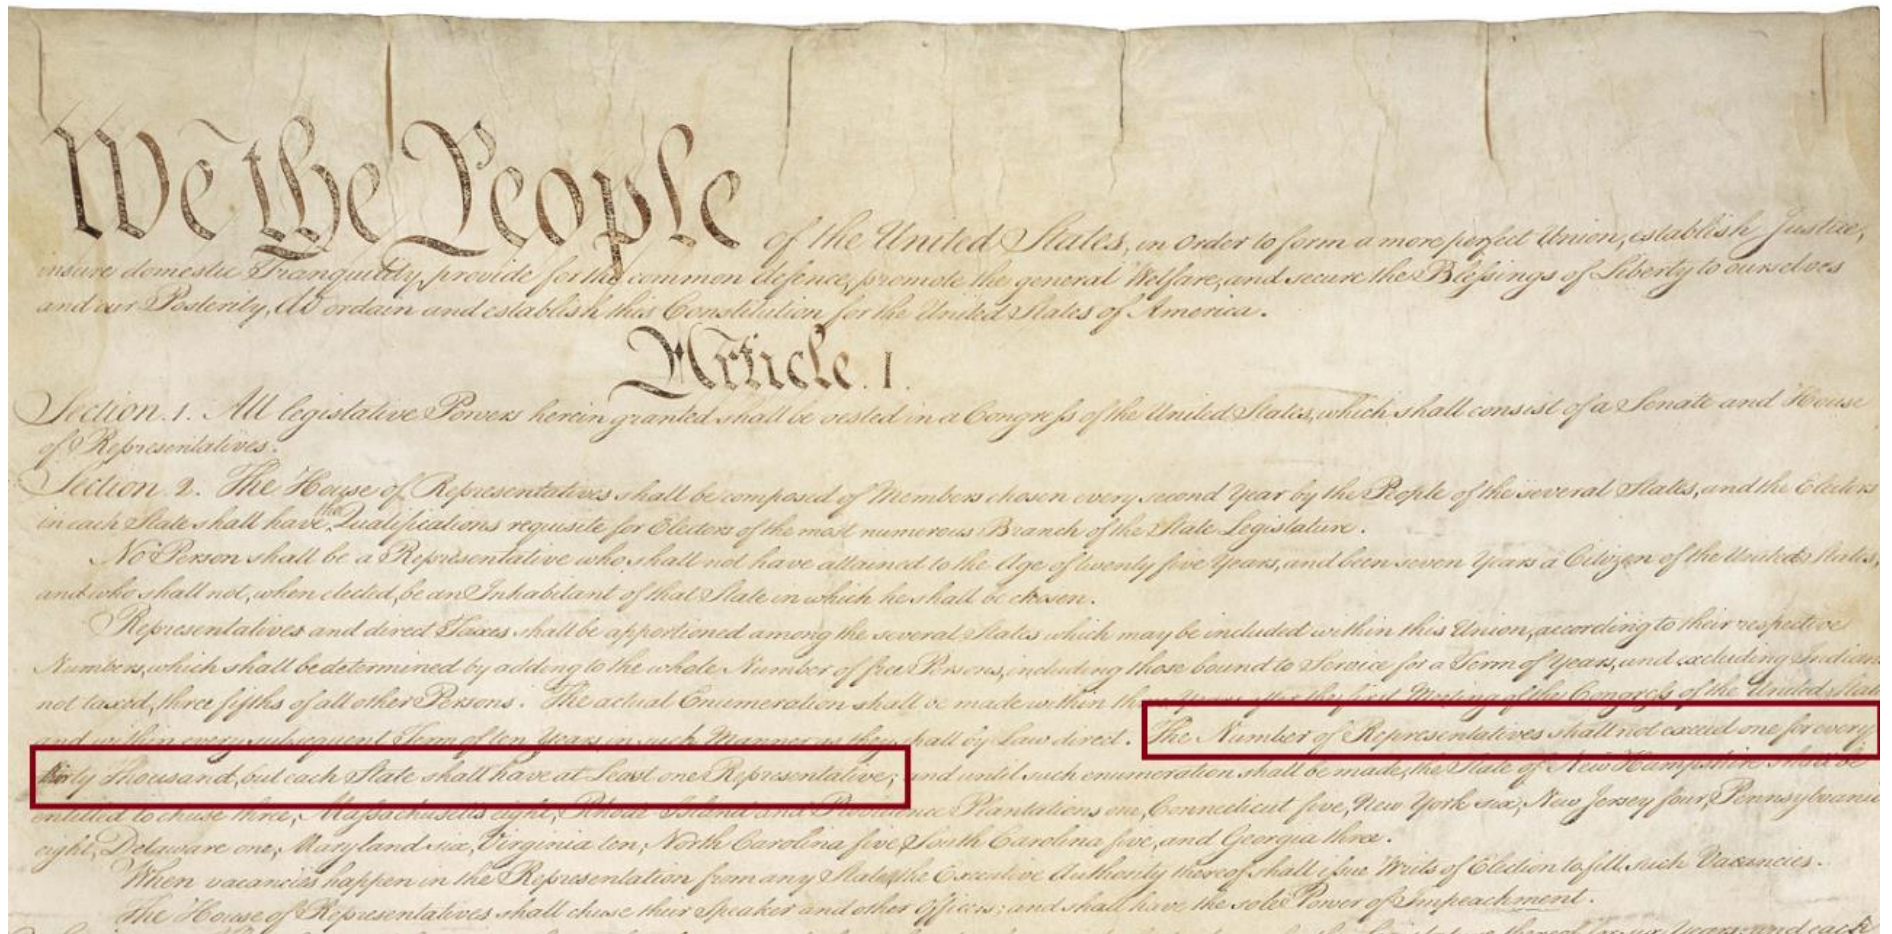 We the People of the United States, in Order to form a more perfect Union, establish Justice,
insure domestic Tranquility, provide for the common defence, promote the general Welfare, and secure the Blessings of Liberty to ourselves
and our Posterity, do ordain and establish this Constitution for the United States of America.
Article. I.
Section. 1. All legislative Powers herein granted shall be vested in a Congress of the United States, which shall consist of a Senate and House
of Representatives.
Section. 2. The House of Representatives shall be composed of Members chosen every second Year by the People of the several States, and the Electors
in each State shall have the Qualifications requisite for Electors of the most numerous Branch of the State Legislature.
No Person shall be a Representative who shall not have attained to the Age of twenty five Years, and been seven Years a Citizen of the United States,
and who shall not, when elected, be an Inhabitant of that State in which he shall be chosen.
Representatives and direct Taxes shall be apportioned among the several States which may be included within this Union, according to their respective
Numbers, which shall be determined by adding to the whole Number of free Persons, including those bound to Service for a Term of Years, and excluding Indians
not taxed, three fifths of all other Persons. The actual Enumeration shall be made within three Years after the first Meeting of the Congress of the United States
and within every subsequent Term of ten Years, in such Manner as they shall by Law direct. The Number of Representatives shall not exceed one for every
thirty Thousand, but each State shall have at Least one Representative; and until such enumeration shall be made, the State of New Hampshire shall be
entitled to chuse three, Massachusetts eight, Rhode Island and Providence Plantations one, Connecticut five, New York six, New Jersey four, Pennsylvania
eight, Delaware one, Maryland six, Virginia ten, North Carolina five, South Carolina five, and Georgia three.
When vacancies happen in the Representation from any State, the Executive Authority thereof shall issue Writs of Election to fill such Vacancies.
The House of Representatives shall chuse their Speaker and other Officers; and shall have the sole Power of Impeachment.